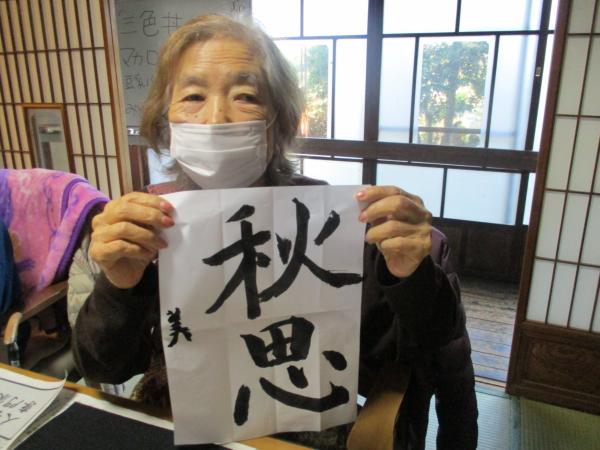 秋思
美
三色丼
マカロ
豆乳